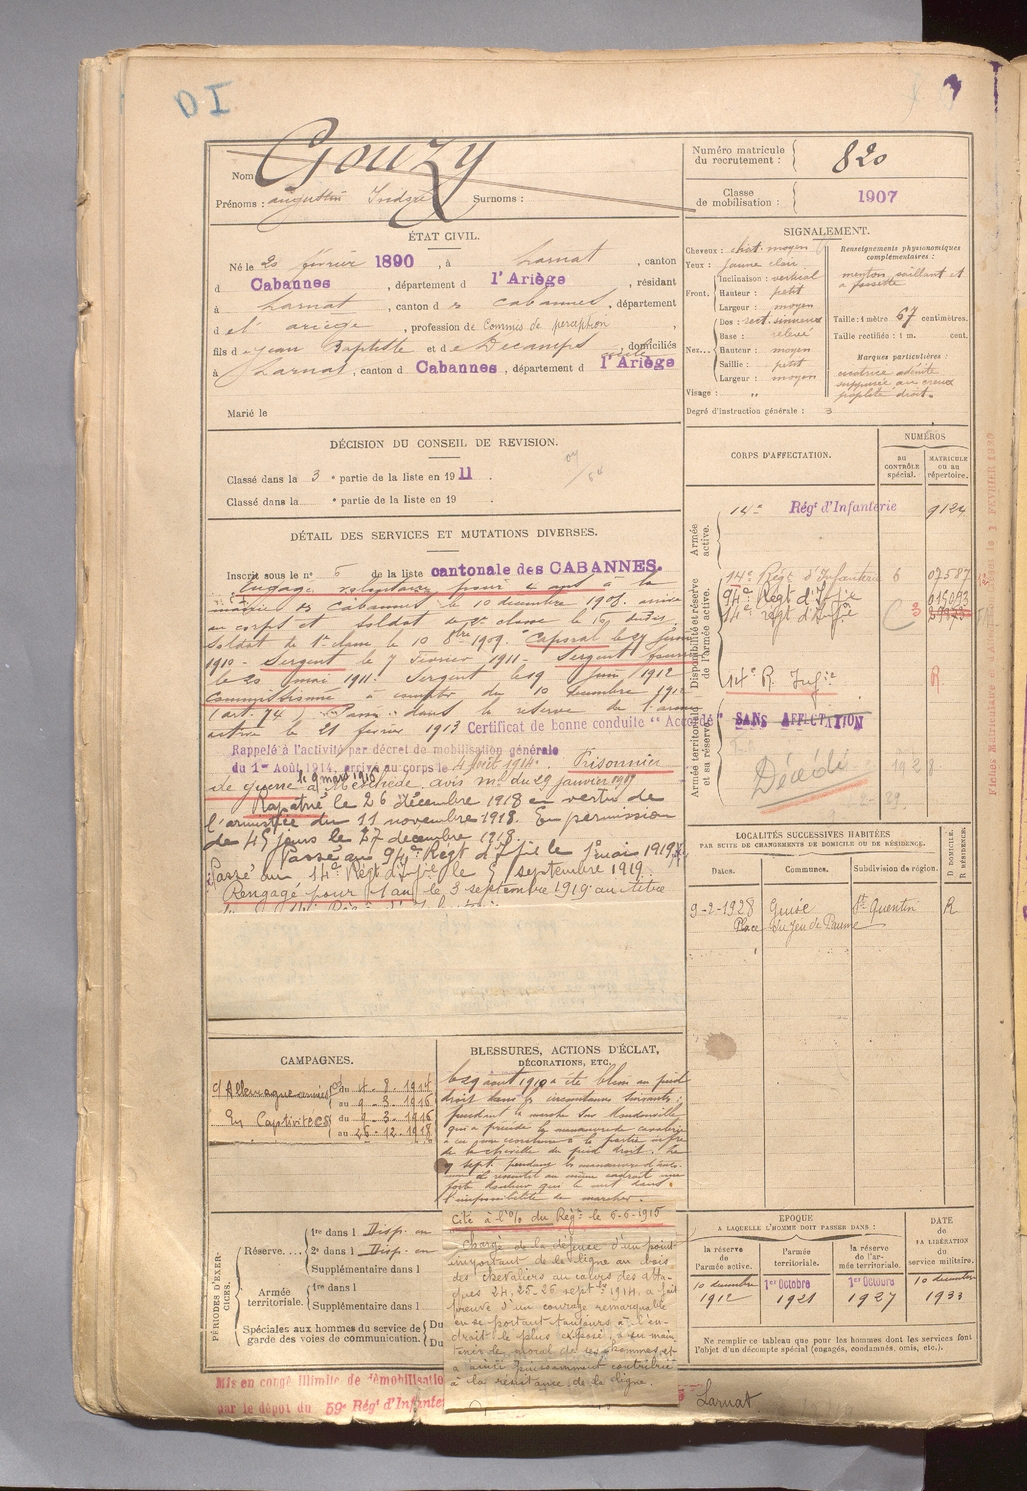 DI
Nom
Gouzy
Prénoms : augustin Isidore Surnoms :
Numéro matricule
du recrutement : 820
Classe
de mobilisation : 1907
ÉTAT CIVIL.
Né le 20 février 1890, à Larnat, canton
d Cabannes, département d l'Ariège, résidant
à Larnat, canton d es Cabannes, département
d e l' ariège, profession de Commis de perception,
fils de Jean Baptiste et de Decamps, domiciliés
à Larnat, canton d Cabannes, département d l'Ariège
Marié le
SIGNALEMENT.
Cheveux : chat. moyen
Yeux : jaune clair
Front. Inclinaison : vertical
Hauteur : petit
Largeur : moyen
Nez... Dos : rect. sinueux
Base : relevé
Hauteur : moyen
Saillie : petit
Largeur : moyen
Visage : "
Renseignements physionomiques
complémentaires :
menton saillant et
à fossette
Taille : 1 mètre 67 centimètres.
Taille rectifiée : 1 m. cent.
Marques particulières :
cicatrice
creux
poplité droit.
Degré d'instruction générale : 3
DÉCISION DU CONSEIL DE REVISION.
Classé dans la 3e partie de la liste en 1911.
Classé dans la e partie de la liste en 19 .
CORPS D'AFFECTATION.
NUMÉROS
AU CONTRÔLE spécial.
MATRICULE ou au répertoire.
Armée active.
14e Régt d'Infanterie 9124
Disponibilité et réserve de l'armée active.
14e Régt d'Infanterie 6 07587
94e Régt d'Infie 015093
14e régt d'Infie 3
14e R. Infie R
Armée territoriale et sa réserve.
SANS AFFECTATION
Décédé
DÉTAIL DES SERVICES ET MUTATIONS DIVERSES.
Inscrit sous le n° 6 de la liste cantonale des CABANNES.
Engagé volontaire pour 4 ans à la
mairie des Cabannes le 10 décembre 1908. arrivé
au corps et soldat de 2e classe le
Soldat de 1e classe le 10 8bre 1909. Caporal le
1910 - Sergent le 7 Février 1911 - Sergent fourrier
le 20 mai 1911. Sergent le 19 juin 1912
Commissionné à compter du 10 décembre 1912
(art. 74) Passé dans la réserve de l'armée
active le 21 février 1913 Certificat de bonne conduite "Accordé"
Rappelé à l'activité par décret de mobilisation générale
du 1er Août 1914, arrivé au corps le 4 Août 1914. Prisonnier
le 9 mars 1916
de guerre à Meschede, avis ml du 29 janvier 1919
Rapatrié le 26 décembre 1918 en vertu de
l'armistice du 11 novembre 1918. En permission
de 45 jours le 27 décembre 1918.
Passé au 94e Régt d'Infie le 1er mai 1919.
Passé au 14e Régt d'Infie le 5 septembre 1919.
Rengagé pour 1 an le 3 septembre 1919 au titre
LOCALITÉS SUCCESSIVES HABITÉES
PAR SUITE DE CHANGEMENTS DE DOMICILE OU DE RÉSIDENCE.
Dates. Communes. Subdivision de région.
D DOMICILE. R RÉSIDENCE.
9-2-1928 Guise St Quentin R
Place du Jeu de Paume
CAMPAGNES.
c/ Allemagne armées du 4 - 8 - 1914
au 9 - 3 - 1916
En Captivité du 9 - 3 - 1916
au 26 - 12 - 1918
BLESSURES, ACTIONS D'ÉCLAT,
DÉCORATIONS, ETC.
Le 29 août 1910 a été blessé au pied
droit dans les circonstances suivantes :
pendant la marche sur Mondonville
qui a précédé les manœuvres de cavalerie
de la cheville du pied droit. Le
9 sept. pendant les manœuvres
il ressentit au même endroit une
forte douleur qui le mit dans
l'impossibilité de marcher.
Cité à l'O/ du Régt le 6-6-1915
Chargé de la défense d'un point
important de la ligne au bois
des chevaliers au cours des atta-
ques 24, 25-26 septbre 1914, a fait
preuve d'un courage remarquable
en se portant toujours à l'en-
droit le plus exposé, a su main-
tenir le moral de ses hommes et
a ainsi puissamment contribué
à la résistance de la ligne.
PÉRIODES D'EXERCICES.
Réserve.... 1re dans l Disp. en
2e dans l Disp. en
Supplémentaire dans l
Armée territoriale. 1re dans l
Supplémentaire dans l
Spéciales aux hommes du service de
garde des voies de communication. Du
Du
EPOQUE
A LAQUELLE L'HOMME DOIT PASSER DANS :
la réserve de l'armée active.
l'armée territoriale.
la réserve de l'armée territoriale.
DATE DE LA LIBÉRATION du service militaire.
10 décembre 1912
1er Octobre 1921
1er Octobre 1927
10 décembre 1933
Ne remplir ce tableau que pour les hommes dont les services font
l'objet d'un décompte spécial (engagés, condamnés, omis, etc.).
Mis en congé illimité de démobilisatio
par le dépôt du 59e Régt d'Infante
Larnat